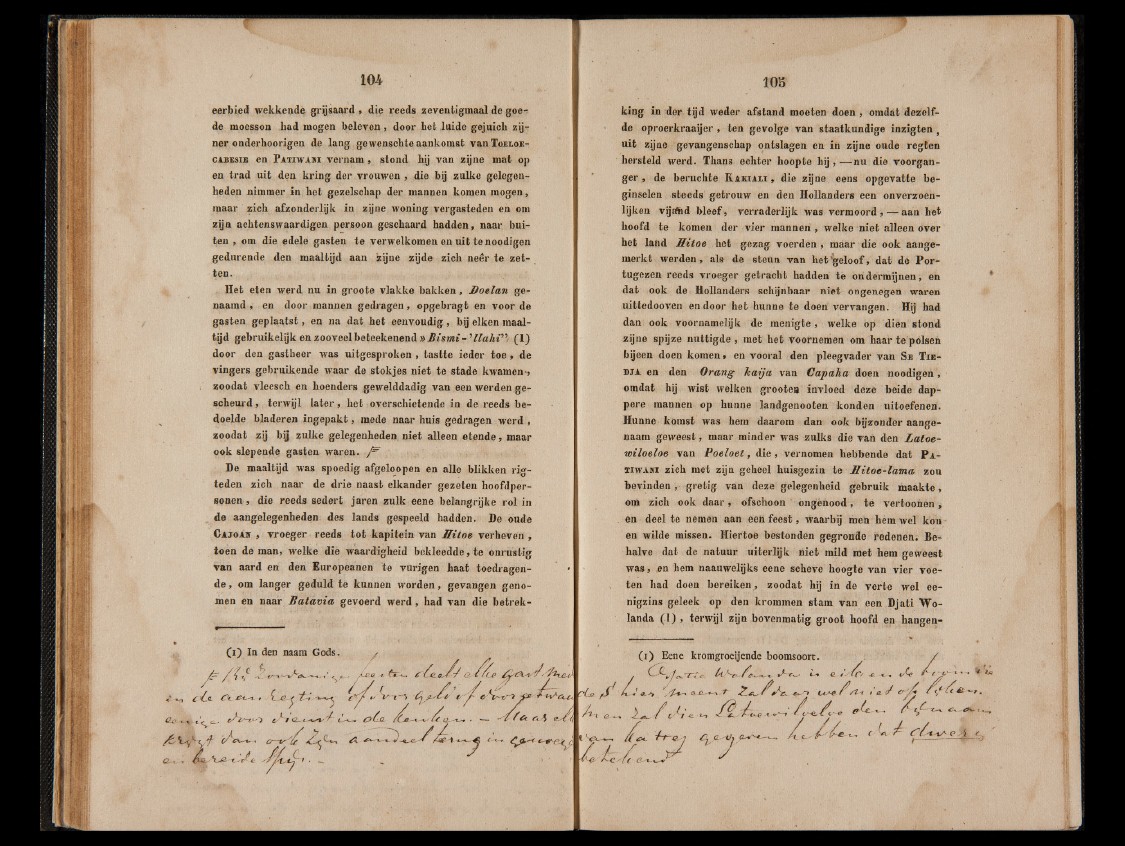 104
eerbied wekkende grijsaard , die reeds zeventigmaal de goe-
de moesson had mogen beleven , door het luide gejuich zij-
ner onderhoorigen de lang gewenschte aankomst van TOELOE-
CABESIE en PATIWANI vernam , stond hij van zijne mat op
en trad uit den kring der vrouwen , die bij zulke gelegen-
heden nimmer in het gezelschap der mannen komen mogen ,
maar zich afzonderlijk in zijne woning vergasteden en om
zijn achtenswaardigen persoon geschaard hadden , naar bui-
ten , om die edele gasten te verwelkomen en uit te noodigen
gedurende den maaltijd aan zijne zijde zich neêr te zet-
ten.
Het eten werd nu in groote vlakke bakken , Doelan ge-
naamd , en door mannen gedragen , opgebragt en voor de
gasten geplaatst , en na dat het eenvoudig , bij elken maal-
tijd gebruikelijk en zooveel beteekenend » Bismi-'llahi" (1)
door den gastheer was uitgesproken , tastte ieder toe , de
vingers gebruikende waar de stokjes niet te stade kwamen ,
zoodat vleesch en hoenders gewelddadig van een werden ge-
scheurd , terwijl later , het overschietende in de reeds be-
doelde bladeren ingepakt , mede naar huis gedragen werd ,
zoodat zij bij zulke gelegenheden niet alleen etende , maar
ook slepende gasten waren.
De maaltijd was spoedig afgeloopen en alle blikken rig-
teden zich naar de drie naast elkander gezeten hoofdper-
sonen , die reeds sedert jaren zulk eene belangrijke rol in
de aangelegenheden des lands gespeeld hadden. De oude
CAJOAN , vroeger reeds tot kapitein van Hitoe verheven ,
toen de man, welke die waardigheid bekleedde , te onrustig
van aard en den Europeanen te vurigen haat toedragen-
de , om langer geduld te kunnen worden , gevangen geno-
men en naar Batavia gevoerd werd , had van die betrek-
(1) In den naam Gods.
Bij feesten deelt elke gast mede
en de aan of door geld of door
eenige door dienst in de keuken. — Maar elk
krijgt dan ook zijn aandeel terug in
en bereide spijs. —
105
king in der tijd weder afstand moeten doen , omdat dezelf-
de oproerkraaijer , ten gevolge van staatkundige inzigten ,
uit zijne gevangenschap ontslagen en in zijne oude regten
hersteld werd. Thans echter hoopte hij , — nu die voorgan-
ger , de beruchte KAKIALI , die zijne eens opgevatte be-
ginselen steeds getrouw en den Hollanders een onverzoen-
lijken vijand bleef , verraderlijk was vermoord , — aan het
hoofd te komen der vier mannen , welke niet alleen over
het land Hitoe het gezag voerden , maar die ook aange-
merkt werden , als de steun van het geloof , dat de Por-
tugezen reeds vroeger getracht hadden te ondermijnen , en
dat ook de Hollanders schijnbaar niet ongenegen waren
uittedooven en door het hunne te doen vervangen. Hij had
dan ook voornamelijk de menigte , welke op dien stond
zijne spijze nuttigde , met het voornemen om haar te polsen
bijeen doen komen , en vooral den pleegvader van SE TIE-
DJA en den Orang kaija van Capaha doen noodigen ,
omdat hij wist welken grooten invloed deze beide dap-
pere mannen op hunne landgenooten konden uitoefenen.
Hunne komst was hem daarom dan ook bijzonder aange-
naam geweest , maar minder was zulks die van den Latoe-
wiloeloe van Poeloet , die , vernomen hebbende dat PA-
TIWANI zich met zijn geheel huisgezin te Hitoe-lama zou
bevinden , gretig van deze gelegenheid gebruik maakte ,
om zich ook daar , ofschoon ongenood , te vertoonen ,
en deel te nemen aan een feest , waarbij men hem wel kon
en wilde missen. Hiertoe bestonden gegronde redenen. Be-
halve dat de natuur uiterlijk niet mild met hem geweest
was , en hem naauwelijks eene scheve hoogte van vier voe-
ten had doen bereiken , zoodat hij in de verte wel ee-
nigzins geleek op den krommen stam van een Djati Wo-
landa (1) , terwijl zijn bovenmatig groot hoofd en hangen-
(1) Eene kromgroeijende boomsoort.
Djatie Wolanda is en de boom die
de S. hier meent zal daar wel niet op lijken.
Men zal dien Latoewiloeloe den bijnaam
van gegeven hebben dat dwerg
betekend